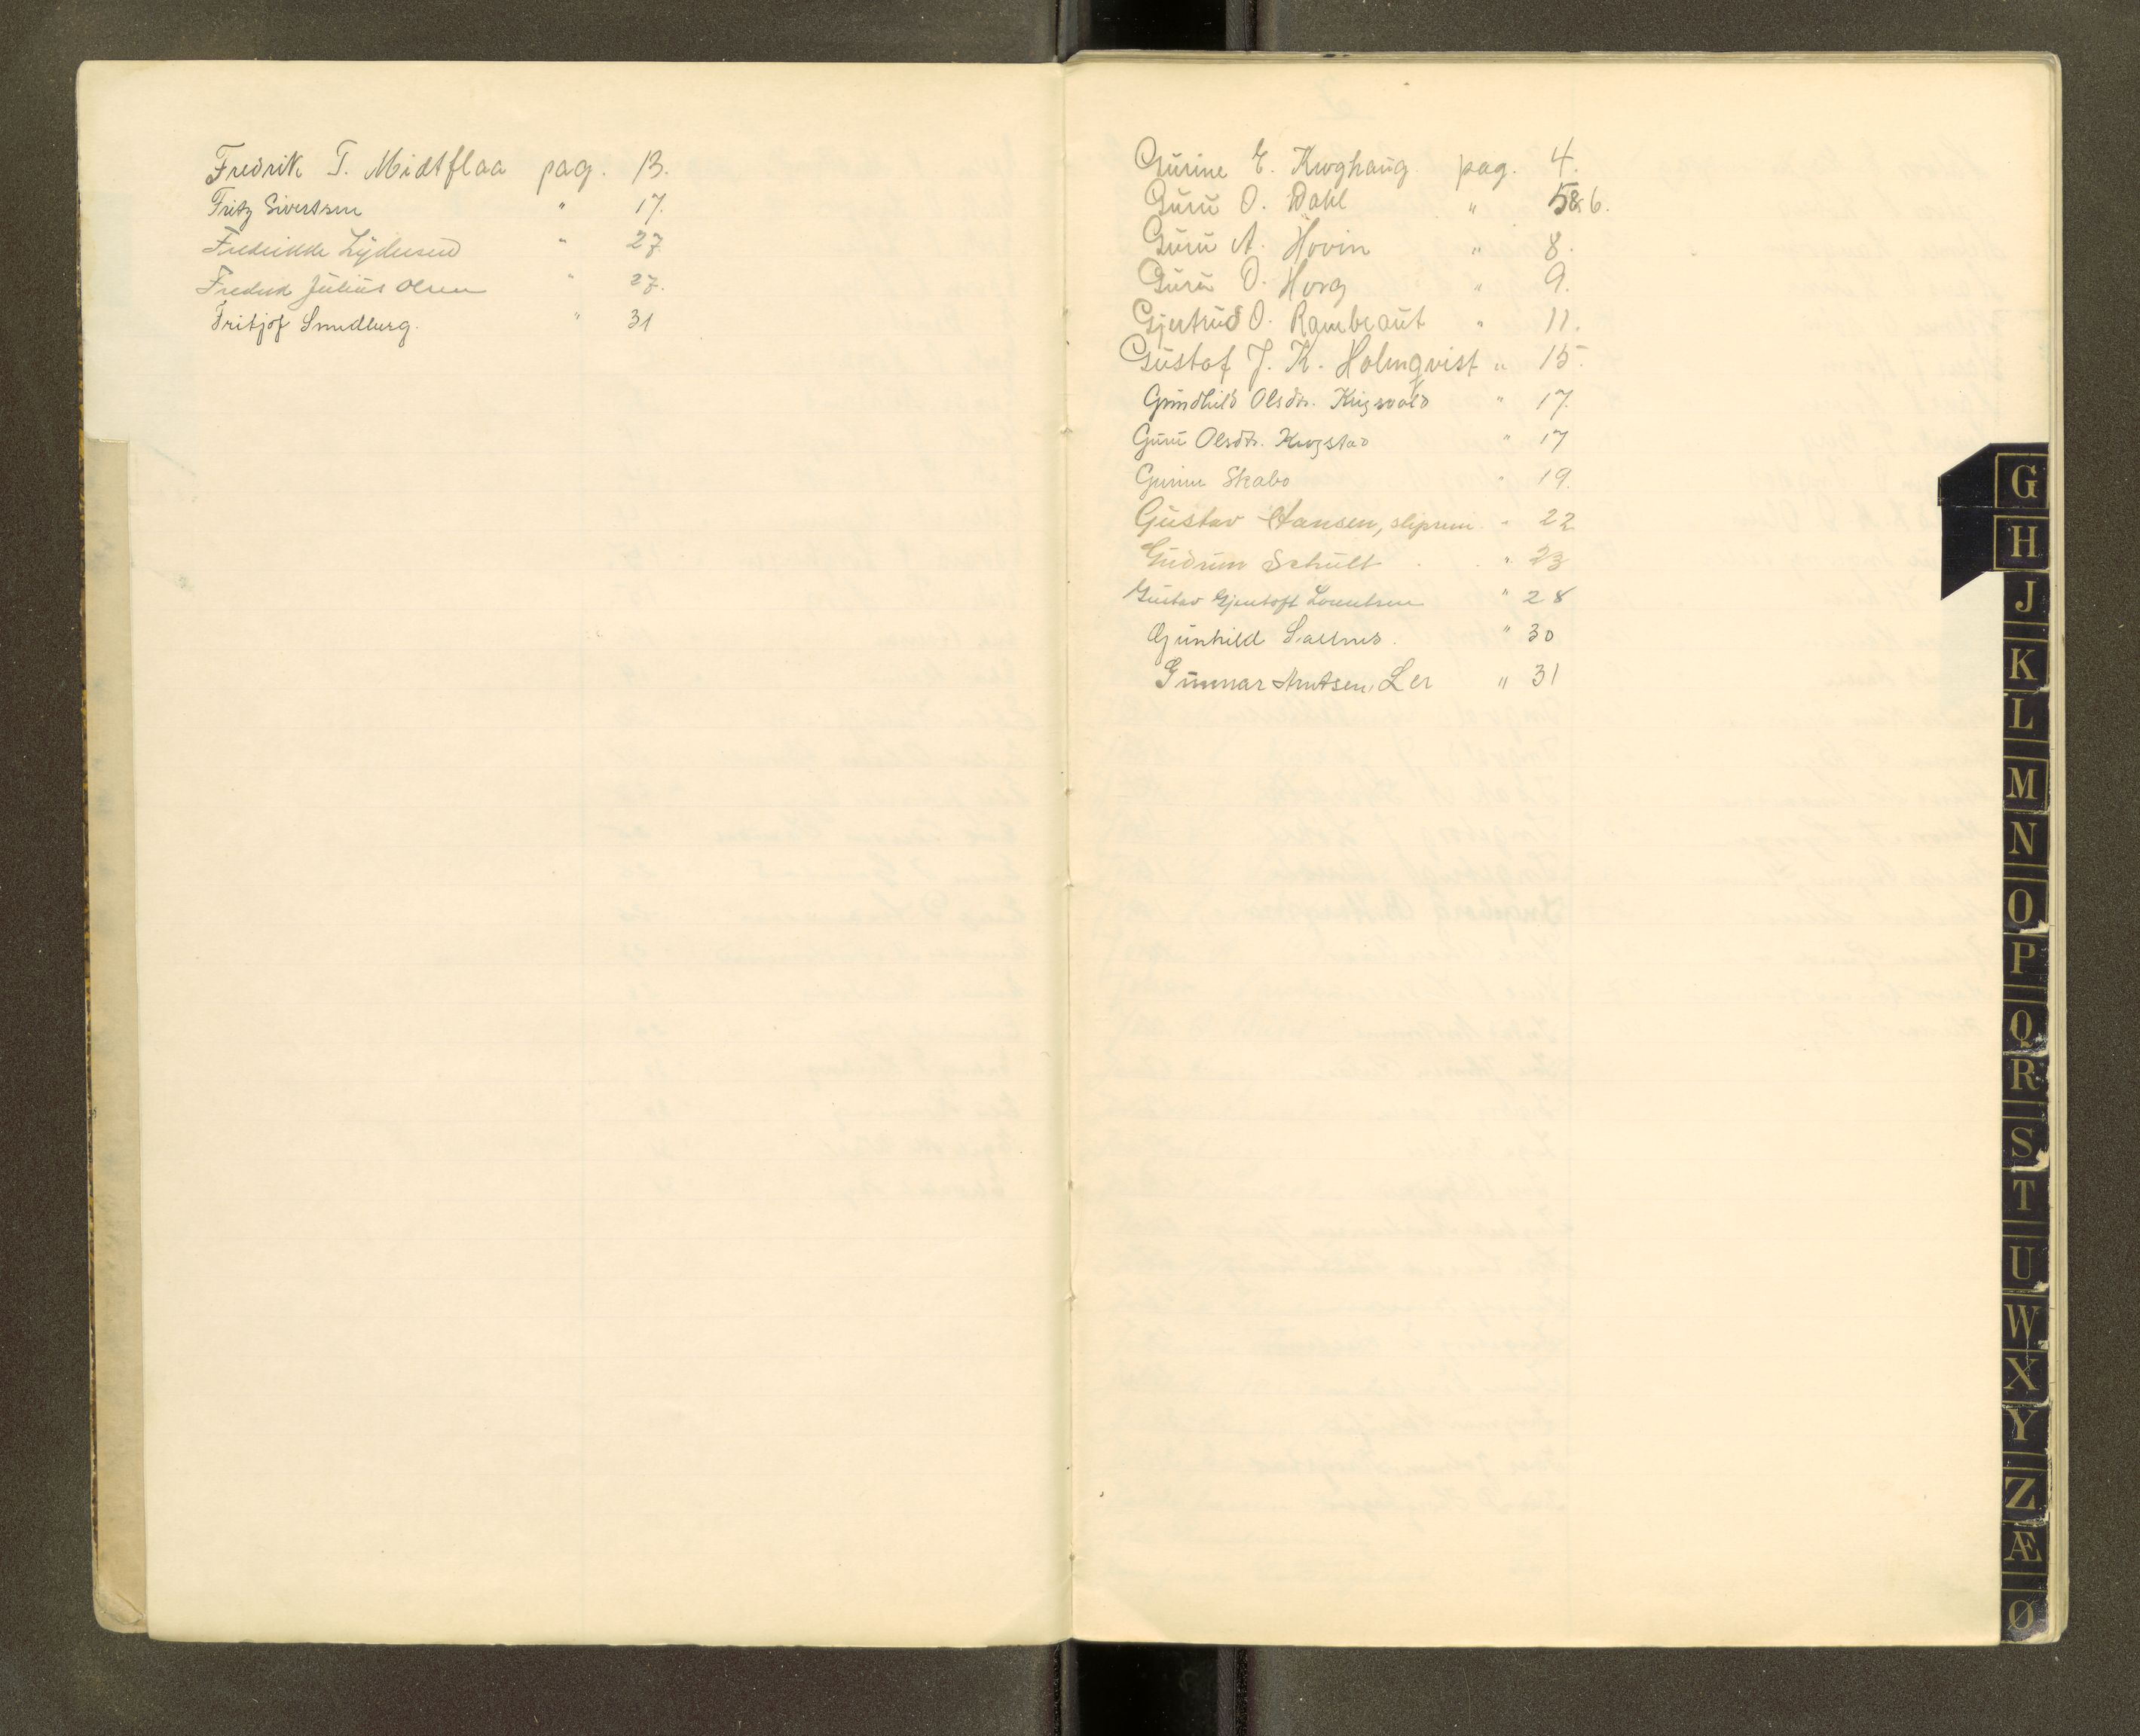 Fredrik T. Midtflaa pag. 13.
Fritz Sivertsen " 17.
Fredrikke Lydersen " 27
Fredrik Julius Olsen " 27.
Fritjof Smedberg. " 31
Gurine E. Kroghaug. pag. 4.
Guru O. Dahl " 5 & 6.
Guru A. Hovin " 8.
Guru O. Horg " 9.
Gjertrud O. Rambraut " 11.
Gustaf J. K. Holmqvist " 15.
Gundhild Olsdtr. Krigsvold " 17.
Guru Olsdtr. Krogstad " 17
Gurine Skabo " 19.
Gustav Hansen, " 22
Gudrun Schult " 23
Gustav Gjentoft Lorentsen " 28
Gunhild " 30
Gunnar Knutsen, Ler " 31
G
H
J
K
L
M
N
O
P
Q
R
S
T
U
W
X
Y
Z
Æ
Ø